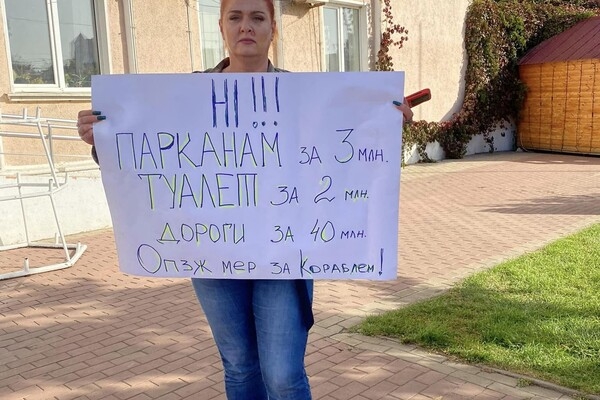 НІ!!!
ПАРКАНАМ ЗА 3 МЛН.
ТУАЛЕТ ЗА 2 МЛН.
ДОРОГИ ЗА 40 МЛН.
ОПЗЖ МЕР ЗА КОРАБЛЕМ!